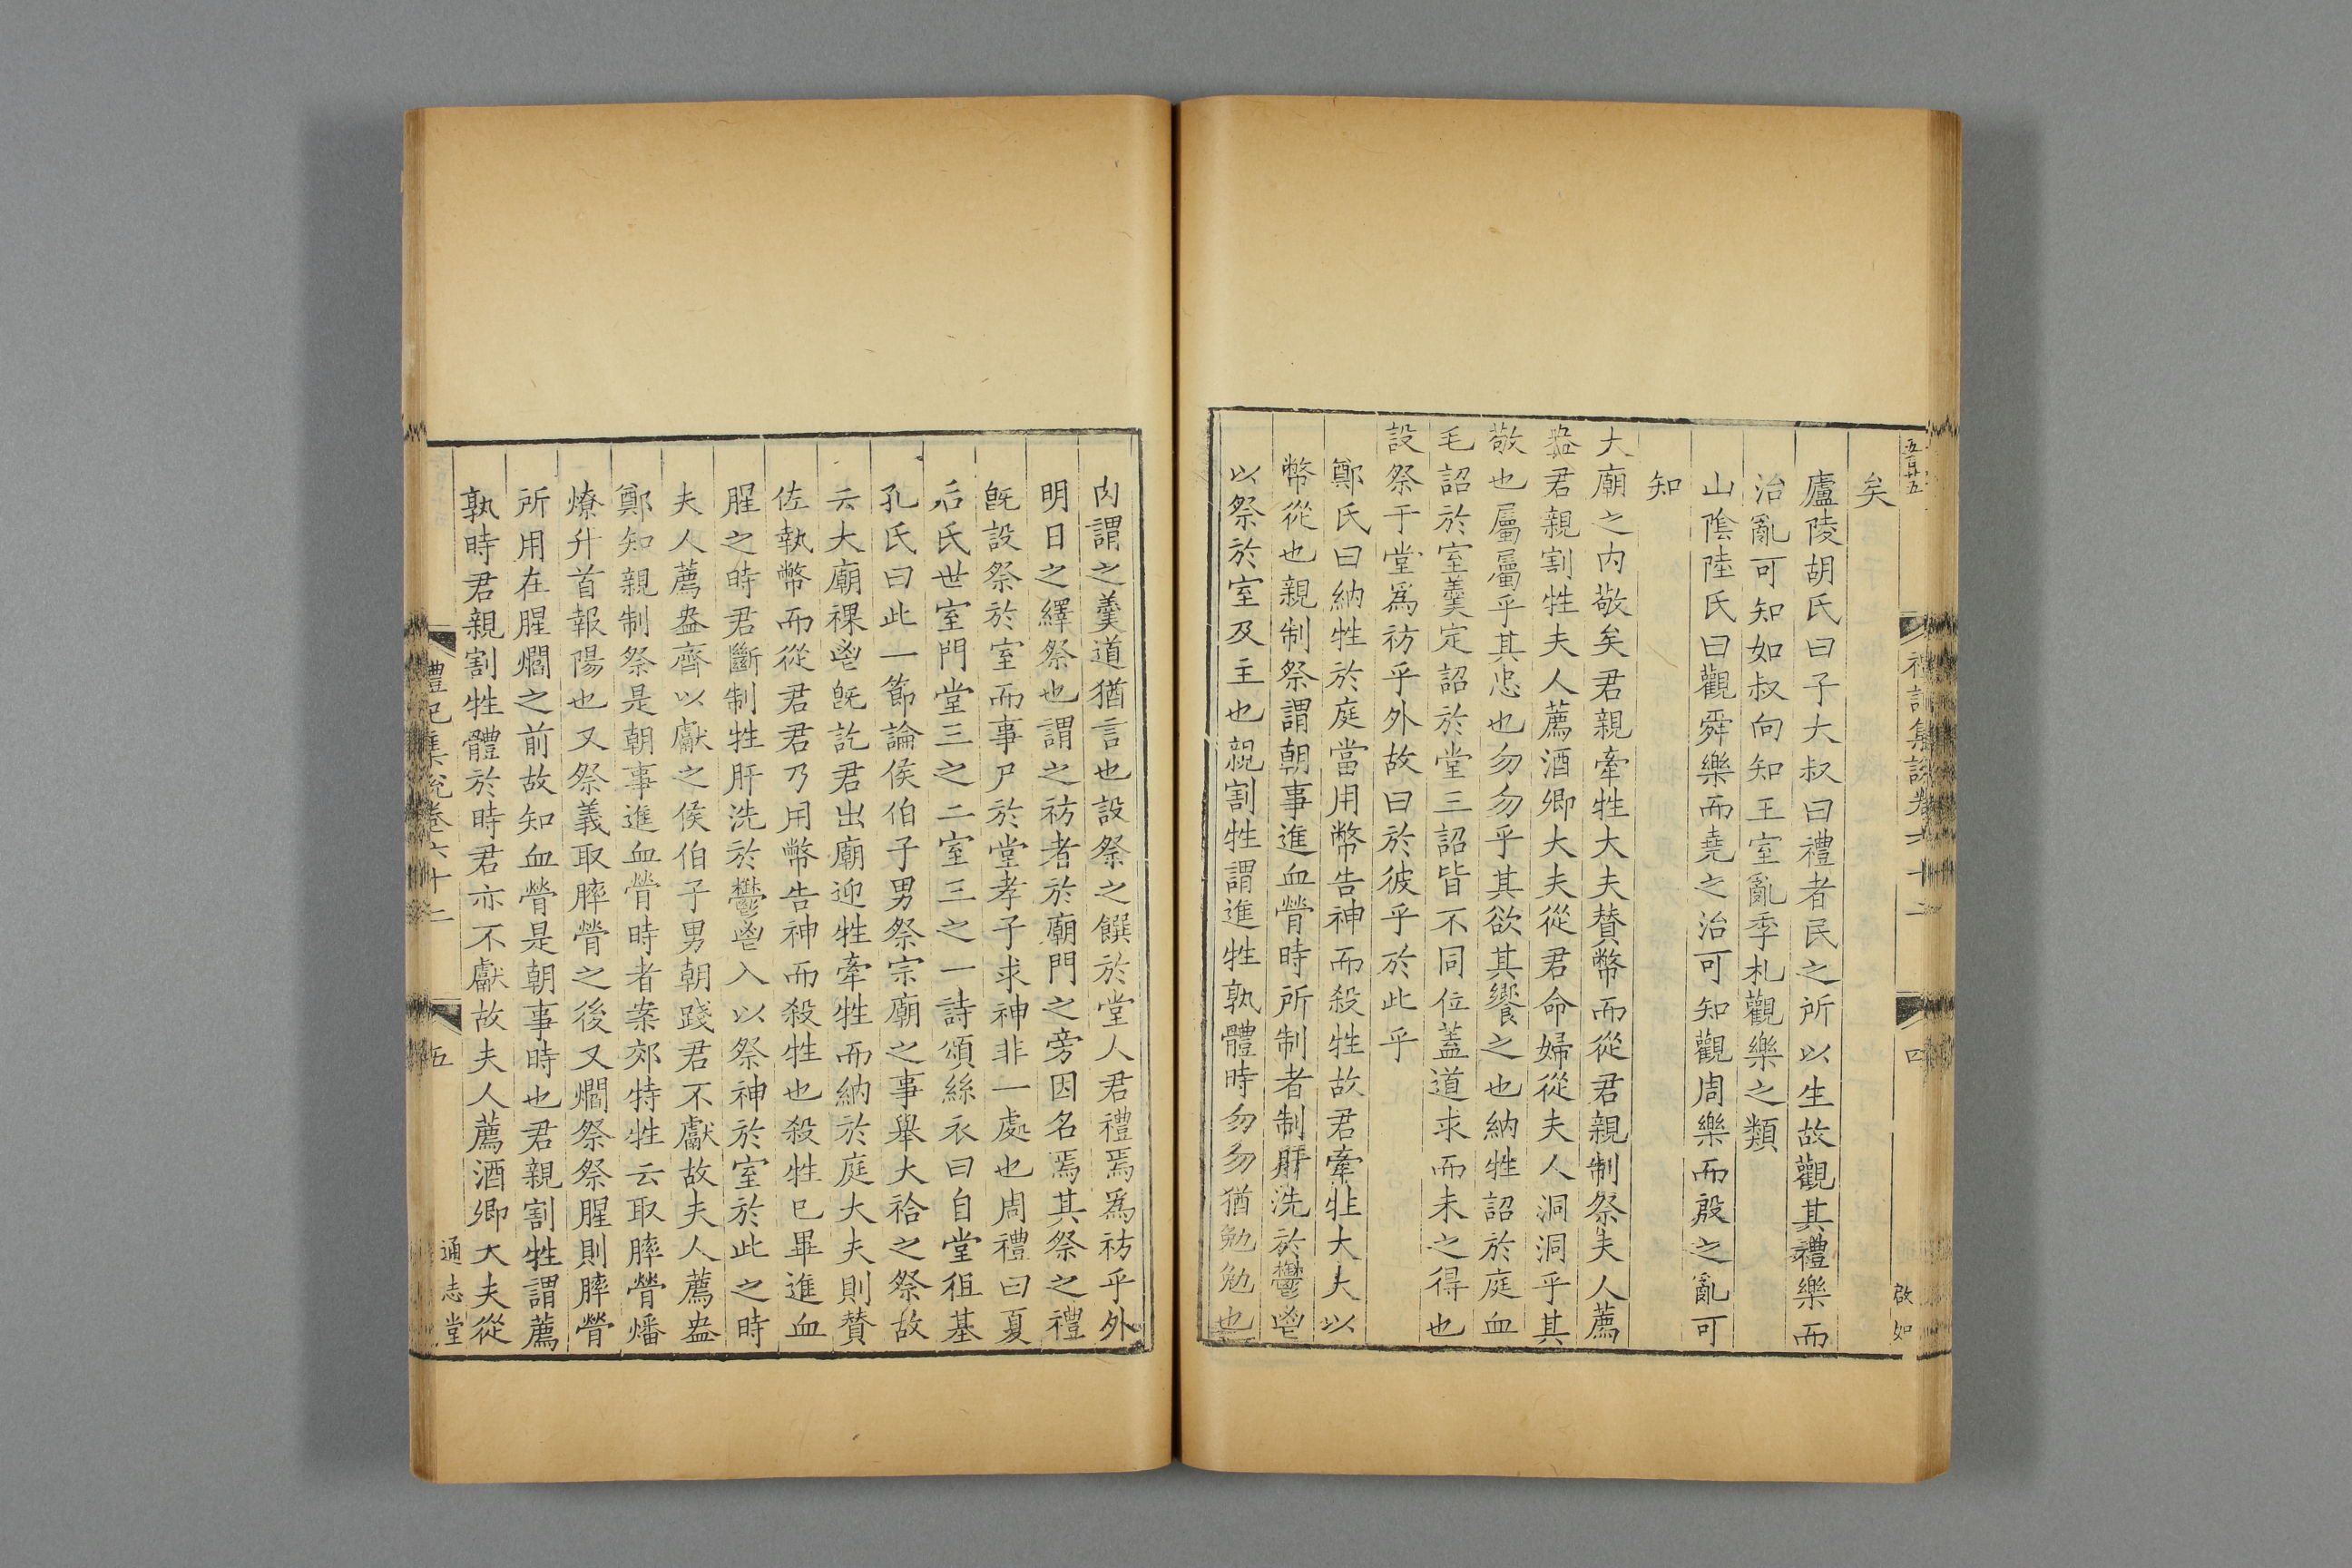 五百廿五
禮記集說卷六十二
四
啟如
矣
廬陵胡氏曰子大叔曰禮者民之所以生故觀其禮樂而
治亂可知如叔向知王室亂季札觀樂之類
山陰陸氏曰觀舜樂而堯之治可知觀周樂而殷之亂可
知
大廟之內敬矣君親牽牲大夫贊幣而從君親制祭夫人薦
盎君親割牲夫人薦酒卿大夫從君命婦從夫人洞洞乎其
敬也屬屬乎其忠也勿勿乎其欲其饗之也納牲詔於庭血
毛詔於室羹定詔於堂三詔皆不同位蓋道求而未之得也
設祭于堂為祊乎外故曰於彼乎於此乎
鄭氏曰納牲於庭當用幣告神而殺牲故君牽牲大夫以
幣從也親制祭謂朝事進血膋時所制者制肝洗於鬱鬯
以祭於室及主也親割牲謂進牲孰體時勿勿猶勉勉也
肉謂之羹道猶言也設祭之饌於堂人君禮焉為祊乎外
明日之繹祭也謂之祊者於廟門之旁因名焉其祭之禮
旣設祭於室而事尸於堂孝子求神非一處也周禮曰夏
后氏世室門堂三之二室三之一詩頌絲衣曰自堂徂基
孔氏曰此一節論侯伯子男祭宗廟之事舉大祫之祭故
云大廟祼鬯旣訖君出廟迎牲牽牲而納於庭大夫則贊
佐執幣而從君君乃用幣告神而殺牲也殺牲已畢進血
腥之時君斷制牲肝洗於鬱鬯入以祭神於室於此之時
夫人薦盎齊以獻之侯伯子男朝踐君不獻故夫人薦盎
鄭知親制祭是朝事進血膋時者案郊特牲云取膟膋燔
燎升首報陽也又祭義取膟膋之後又爓祭祭腥則膟膋
所用在腥爓之前故知血膋是朝事時也君親割牲謂薦
孰時君親割牲體於時君亦不獻故夫人薦酒卿大夫從
禮記集說卷六十二
五
通志堂